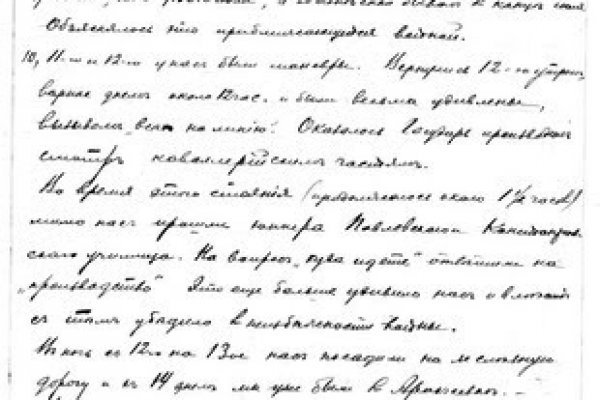 Объяснялось это приближающейся войной.
10, 11-го и 12-го у нас были маневры. Вернулись 12-го утром,
вернее днем около 12 час. и были весьма удивлены,
вызовом „всех на линию“. Оказалось Государь производил
смотръ кавалерийским частям.
Во время этого стояния (продолжалось около 1½ часов)
мимо нас прошли юнкера Павловского
ского училища. На вопрос „куда идете“ отвѣтили на
„производство“ Это еще больше удивило нас и
с тем убедило в неизбежности войны.
В ночь с 12-го на 13-ое нас посадили на железную
дорогу и съ 14 днем мы уже были в